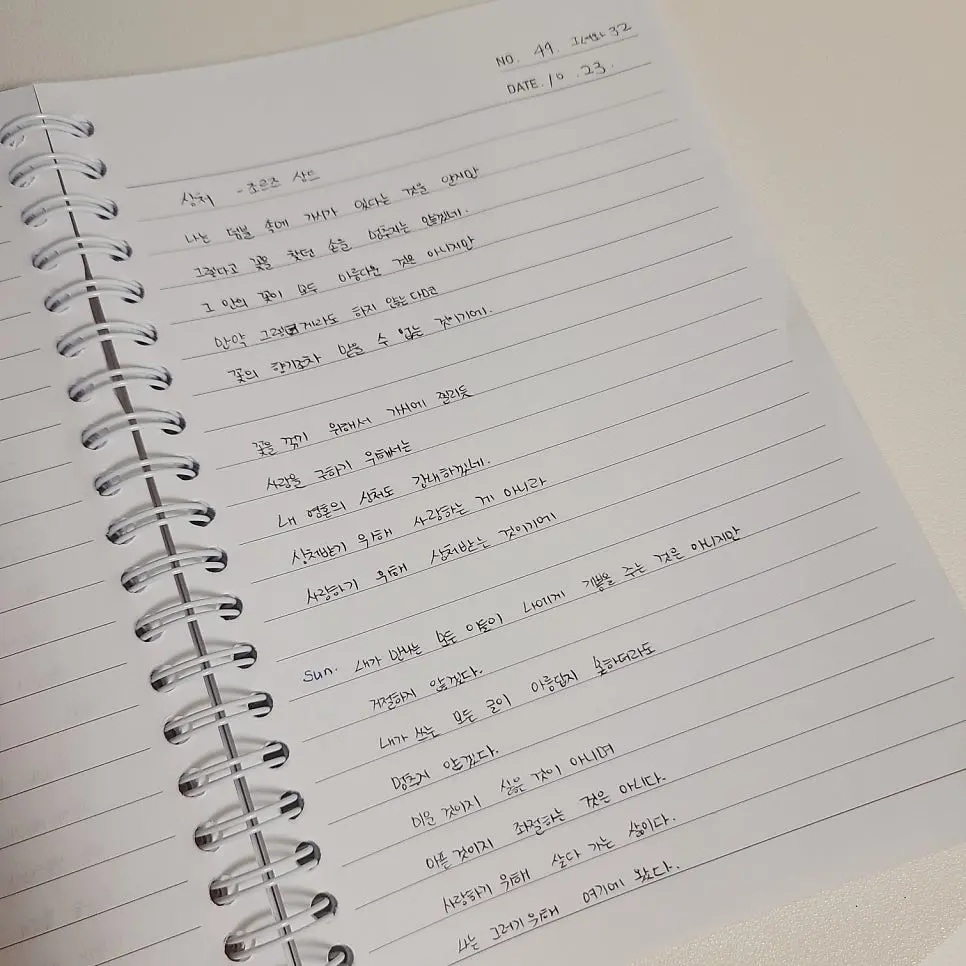 NO. 49. 그녀와 32
DATE. 10 . 23.
상처 - 조르즈 상드
나는 덤불 속에 가시가 있다는 것을 안지만
그렇다고 꽃을 찾던 손을 멈추지는 않겠네.
그 안의 꽃이 모두 아름다운 것은 아니지만
만약 그렇게라도 하지 않는다면
꽃의 향기조차 맡을 수 없는 것이기에.
꽃을 꺾기 위해서 가시에 찔리듯
사랑을 구하기 위해서는
내 영혼의 상처도 감내하겠네.
상처받기 위해 사랑하는 게 아니라
사랑하기 위해 상처받는 것이기에
Sun. 내가 만나는 모든 이들이 나에게 기쁨을 주는 것은 아니지만
거절하지 않겠다.
내가 쓰는 모든 글이 아름답지 못하더라도
멈추지 않겠다.
미운 것이지 싫은 것이 아니며
아픈 것이지 좌절하는 것은 아니다.
사랑하기 위해 살다 가는 삶이다.
나는 그러기 위해 여기에 왔다.